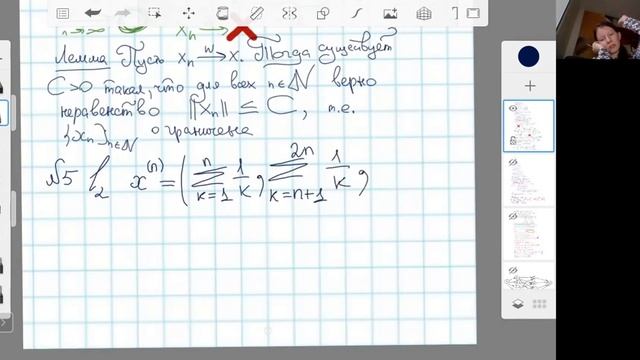 x_n →
Лемма Пусть x_n →^w x. Тогда существует
C>0 такая, что для всех n∈ℕ верно
неравенство ‖x_n‖ ≤ C, т.е.
{x_n}_{n∈ℕ} ограничена
№5 l_2 x^{(n)} = (∑_{k=1}^{n} 1/k, ∑_{k=n+1}^{2n} 1/k,